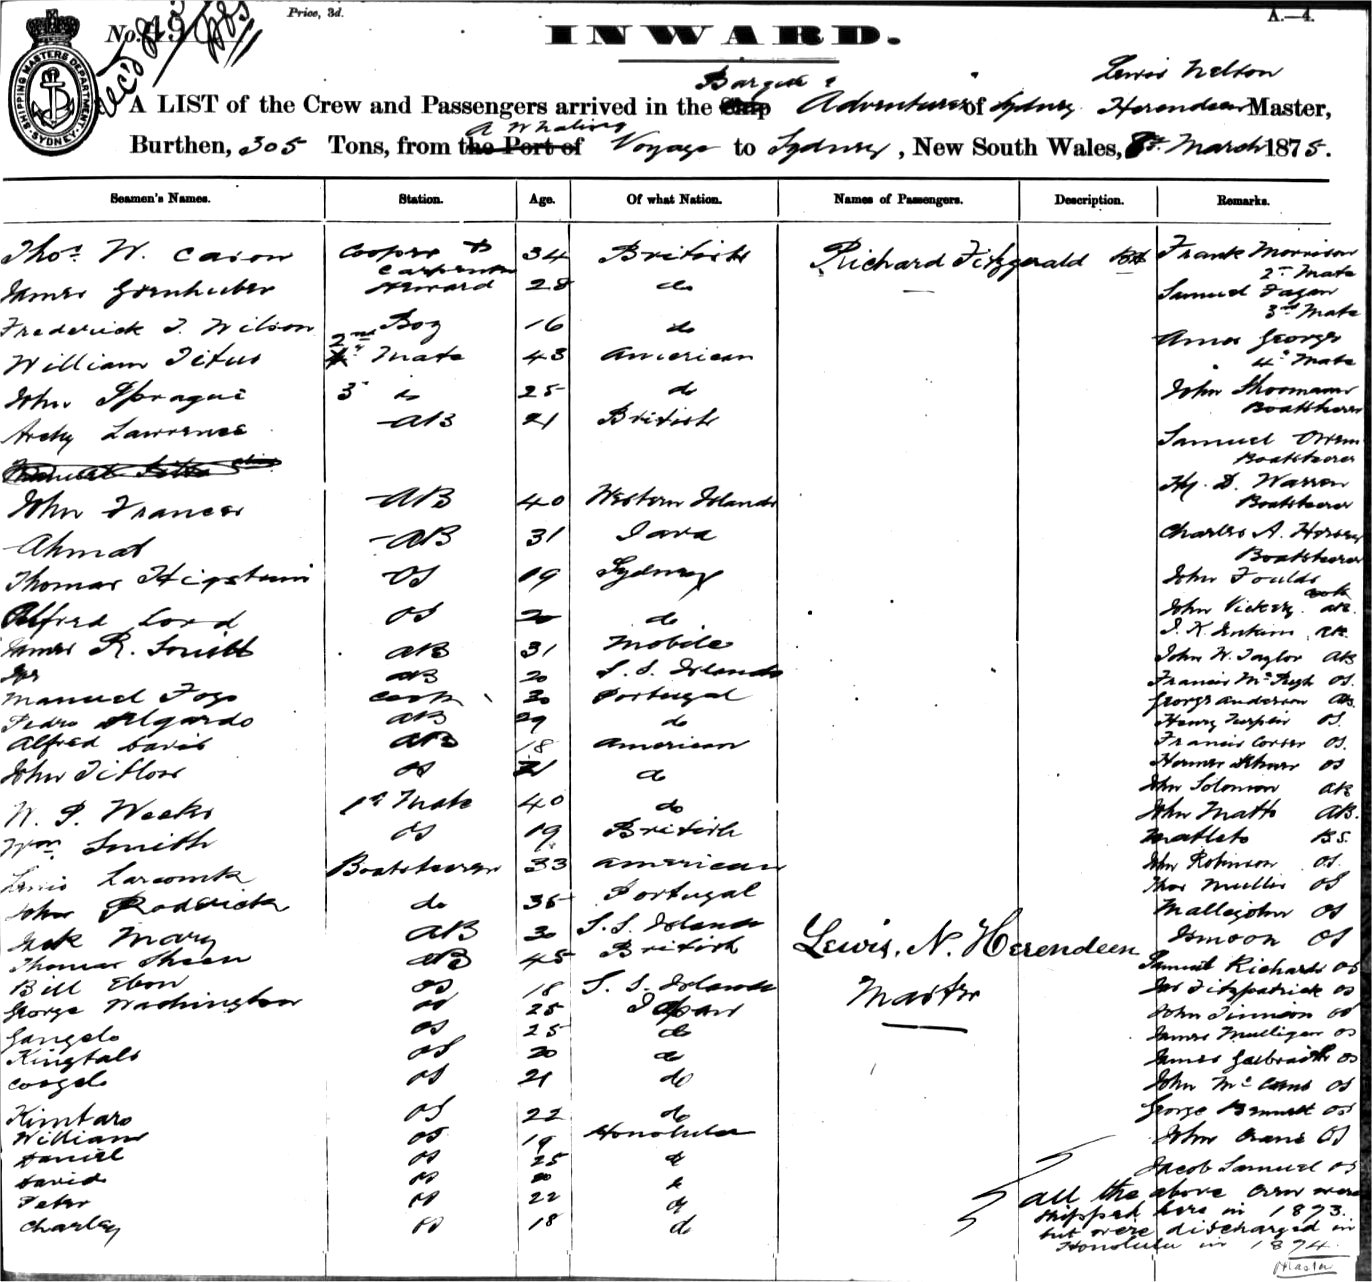 No. 49
Price, 3d.
INWARD.
A.—4.
SHIPPING MASTERS DEPARTMENT SYDNEY
Barque Lewis Nelson
A LIST of the Crew and Passengers arrived in the Ship Adventurer of Sydney Herendeen Master,
A Whaling
Burthen, 305 Tons, from the Port of Voyage to Sydney, New South Wales, March 1875.
Seamen's Names. Station. Age. Of what Nation. Names of Passengers. Description. Remarks.
Thos. W. Cason Cooper & Carpenter 34 British Richard Fitzgerald Frank Morrison
2nd Mate
James Steward 28 do Samuel Fagan
3rd Mate
Frederick T. Wilson Boy 16 do
William Titus 2nd Mate 43 American Amos George
4th Mate
John Sprague 3 do 25 do John
Boatsteerer
Archy Lawrence AB 21 British Samuel Owen
Boatsteerer
Hy. D. Warren
Boatsteerer
John Frances AB 40 Western Islands
Ahmat AB 31 Java Charles A.
Boatsteerer
Thomas OS 19 Sydney John Foulds
cook
Alfred Lord OS 20 do John Vickery AB
James R. Smith AB 31 Mobile AB
AB 20 S. S. Islands John W. Taylor AB
Manuel Fogo Cook 30 Portugal Francis OS
Pedro AB 29 do George Anderson AB
Alfred Davis AB 18 American Henry OS
John OS 21 do Francis OS
OS
John Solomon AB
W. P. Weeks 1st Mate 40 do John Matts AB.
Wm Smith OS 19 British
Lewis Larcomb Boatsteerer 33 American John Robinson OS
John Roderick do 35 Portugal Thos OS
Jack Mary AB 30 S. S. Islands OS
Thomas AB 45 British Lewis. N. Herendeen OS
Bill Ebon OS 18 S. S. Islands Master Samuel Richards OS
George Washington OS 25 Japan Jas Fitzpatrick OS
OS 25 do John OS
OS 20 do James Mulligan OS
OS 21 do James Galbraith OS
John OS
Kimtaro OS 22 do George Bennett OS
William OS 19 Honolulu John Crane OS
Daniel OS 25 do
David OS do Jacob Samuel OS
Peter OS 22 do All the above crew were
Charley OS 18 do shipped here in 1873.
but were discharged in
Honolulu in 1874.
Master